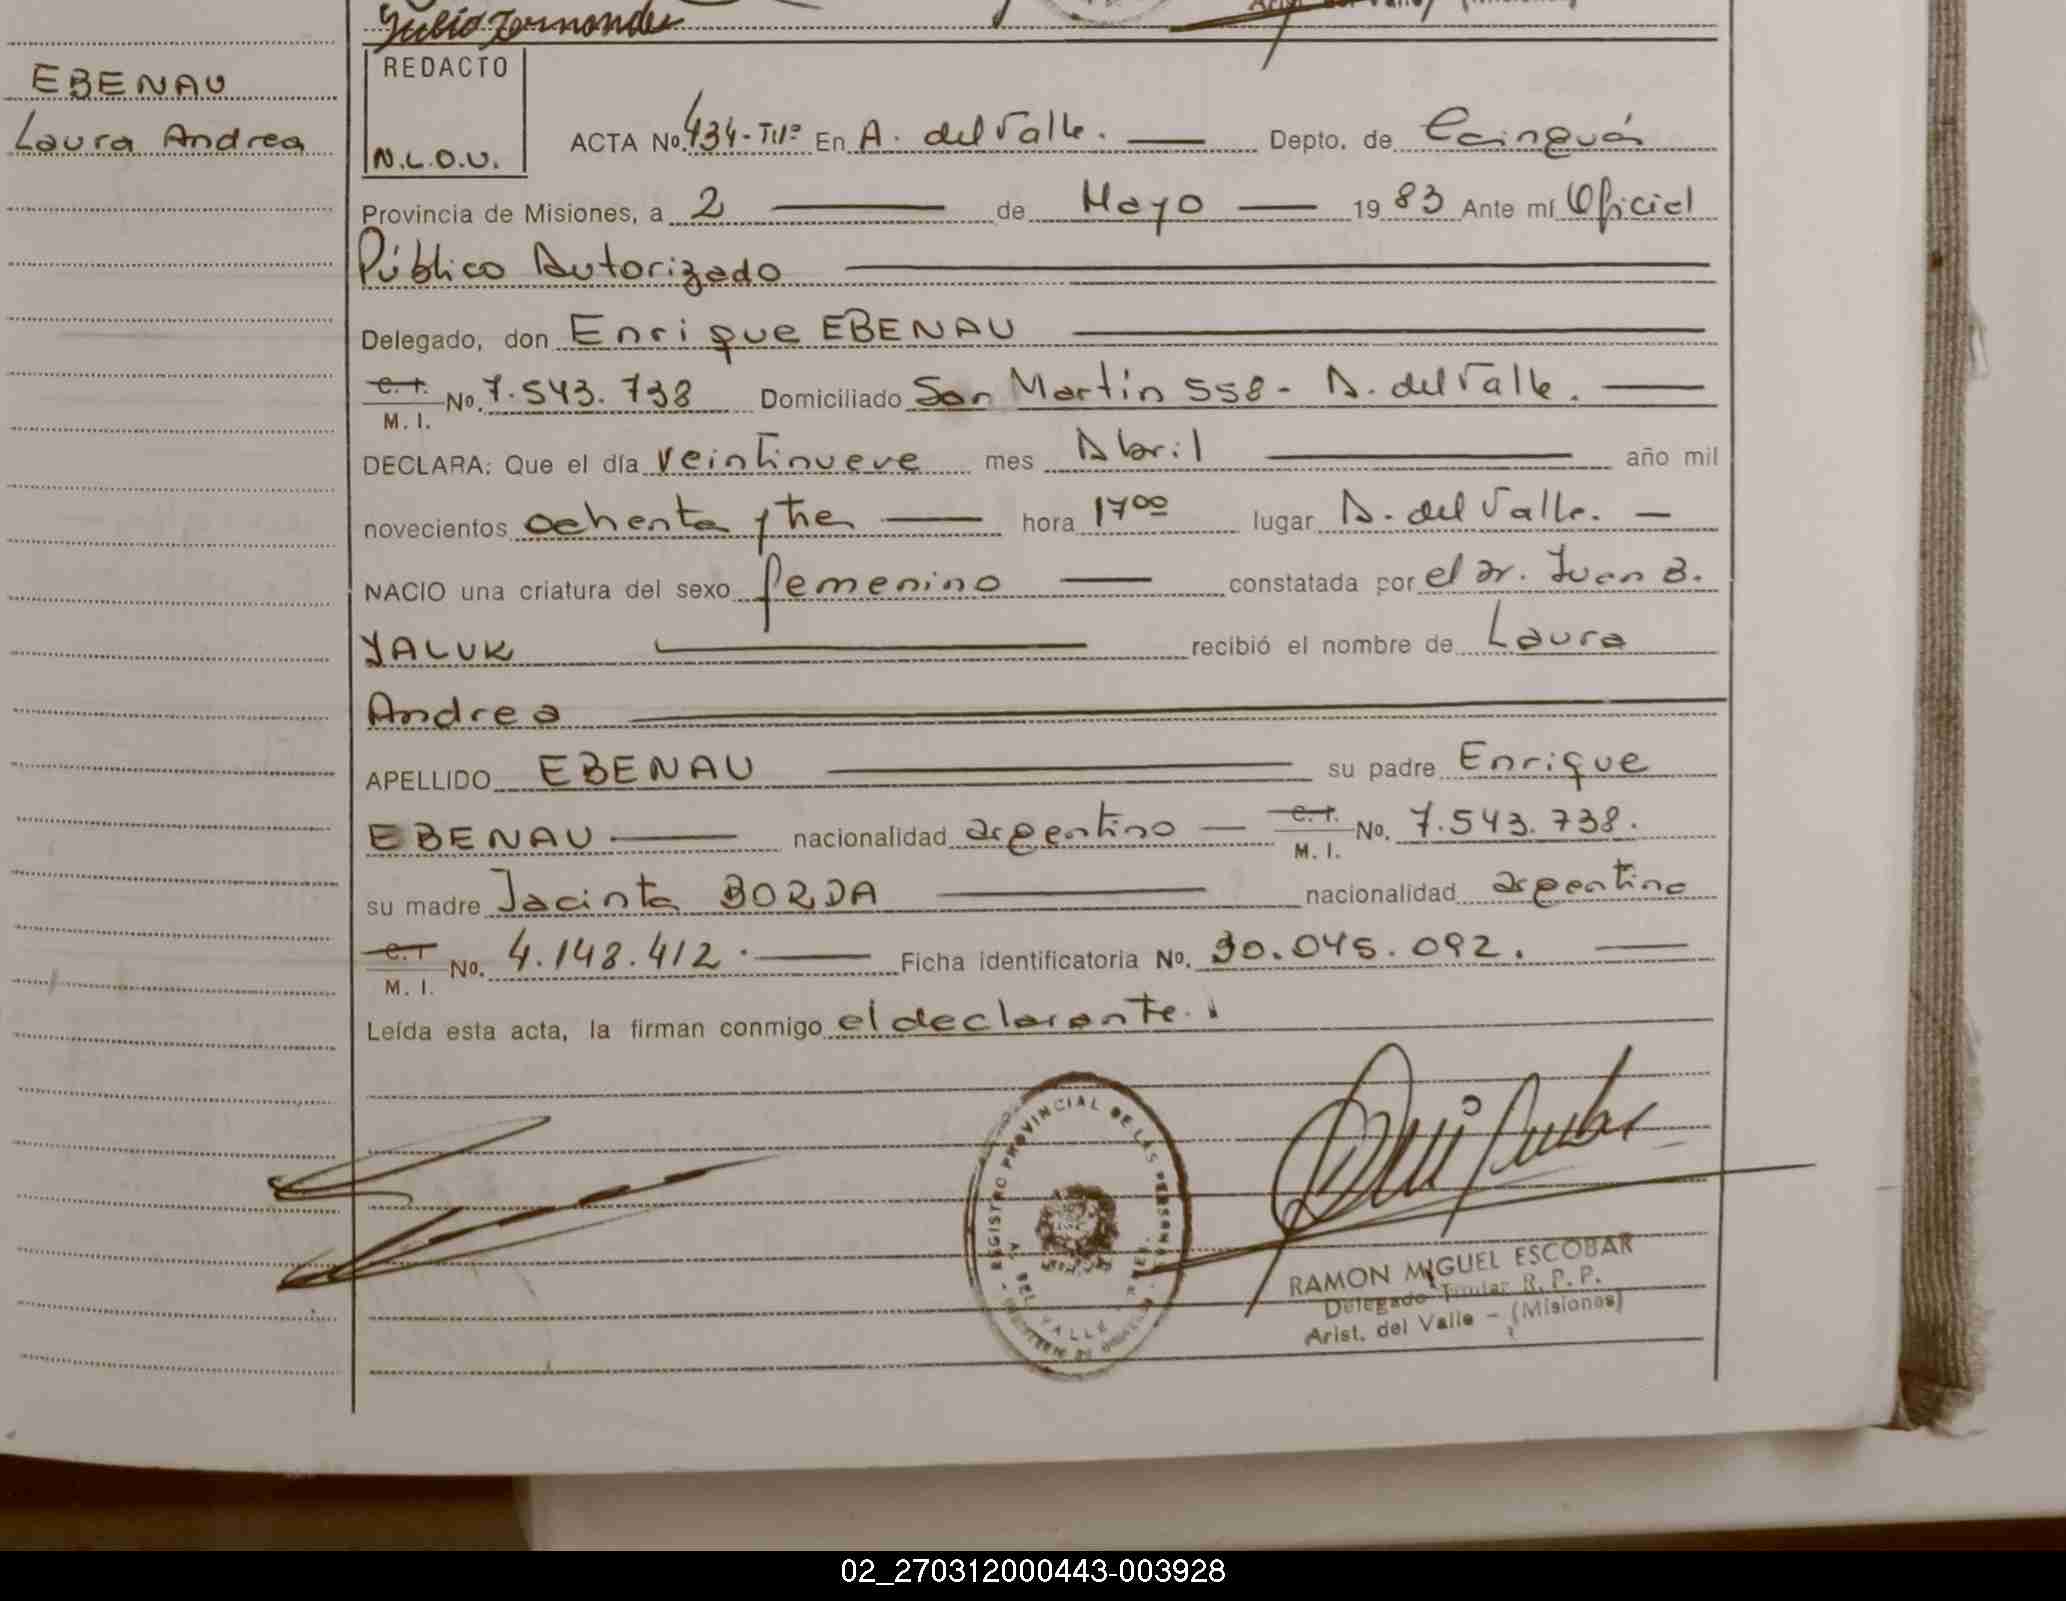 Julio Fernandez
EBENAU
Laura Andrea
REDACTO
N.L.O.U.
ACTA No. 434-TIIº En A. del Valle. Depto. de Cainguás
Provincia de Misiones, a 2 de Mayo 1983 Ante mí Oficial
Público Autorizado
Delegado, don Enrique EBENAU
C. I. M. I. No. 7.543.738 Domiciliado San Martín 558 - A. del Valle.
DECLARA: Que el día veintinueve mes Abril año mil
novecientos ochenta y tres hora 17ºº lugar A. del Valle. —
NACIO una criatura del sexo femenino constatada por el Dr. Juan B.
YALUK recibió el nombre de Laura
Andrea
APELLIDO EBENAU su padre Enrique
EBENAU nacionalidad argentino — C. I. M. I. No. 7.543.738.
su madre Jacinta BORDA nacionalidad argentina
C. I. M. I. No. 4.148.412. Ficha identificatoria No. 30.045.092.
Leída esta acta, la firman conmigo el declarante.
REGISTRO PROVINCIAL DE LAS PERSONAS
DEL VALLE
RAMON MIGUEL ESCOBAR
Delegado Titular R. P. P.
Arist. del Valle - (Misiones)
02_270312000443-003928